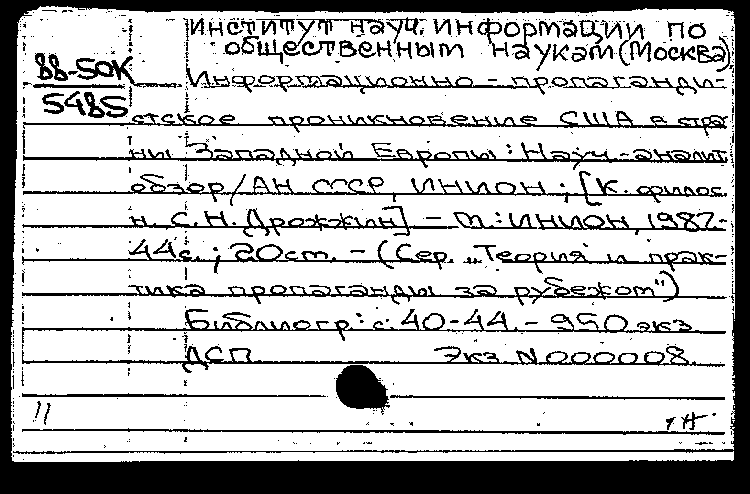 Институт науч. информации по
общественным наукам (Москва)
88-50К
5485
Информационно-пропаганди-
стское проникновение США в стра
ны Западной Европы: Науч.-аналит
обзор / АН СССР, ИНИОН; [К. филос.
н. С.Н. Дрожжин] - М.: ИНИОН, 1987-
44с.; 20см. - (Сер. „Теория и прак-
тика пропаганды за рубежом")
Библиогр: с. 40-44. - 950 экз
ДСП Экз. N 000008.
11